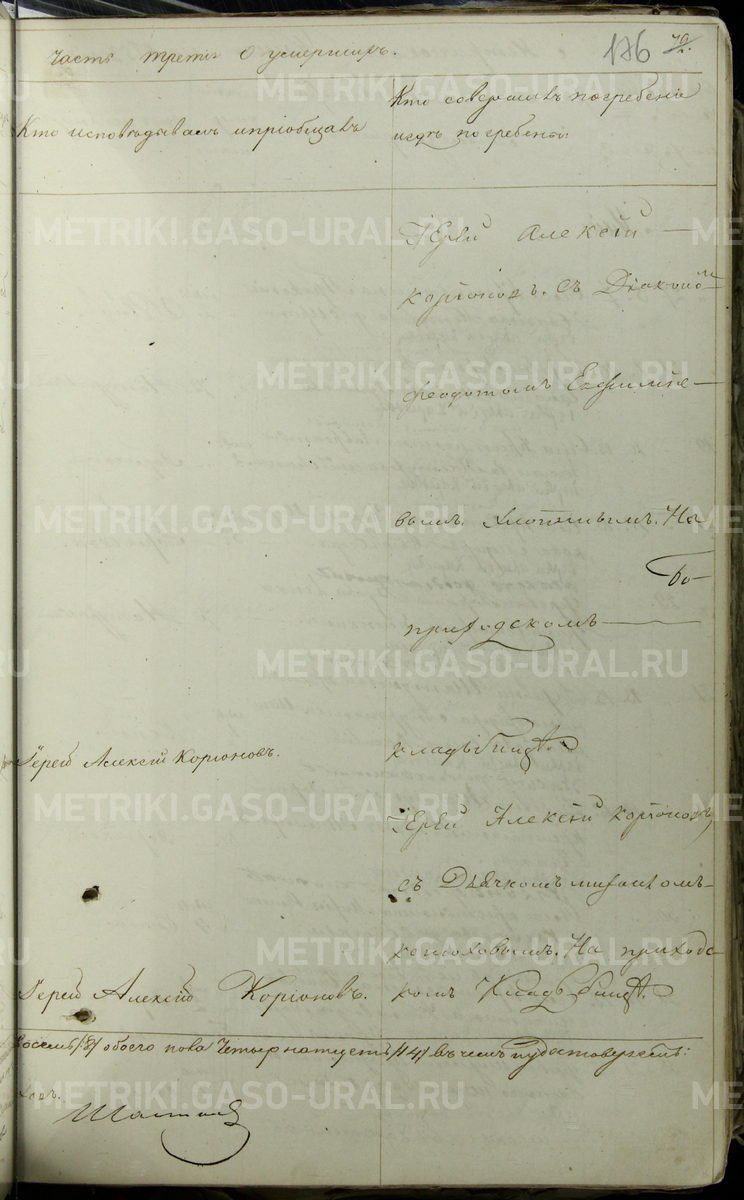 Часть третія о умершихъ.
186
Кто исповѣдывалъ и пріобщалъ
Кто совершалъ погребеніе
и гдѣ погребены
METRIKI.GASO-URAL.RU
Іерей Алексій
Коріоновъ. съ Діакономъ
Феодотомъ Евфиміе-
вымъ Хлопинымъ. На
приходскомъ
кладьбищѣ.
Іерей Алексій Коріоновъ.
Іерей Алексій Коріоновъ,
съ Дьячкомъ
На приходс-
комъ Кладьбищѣ.
Іерей Алексій Коріоновъ.
восемь /8/ обоего пола Четырнатцеть /14/ въ чемъ и удостоверяемъ: